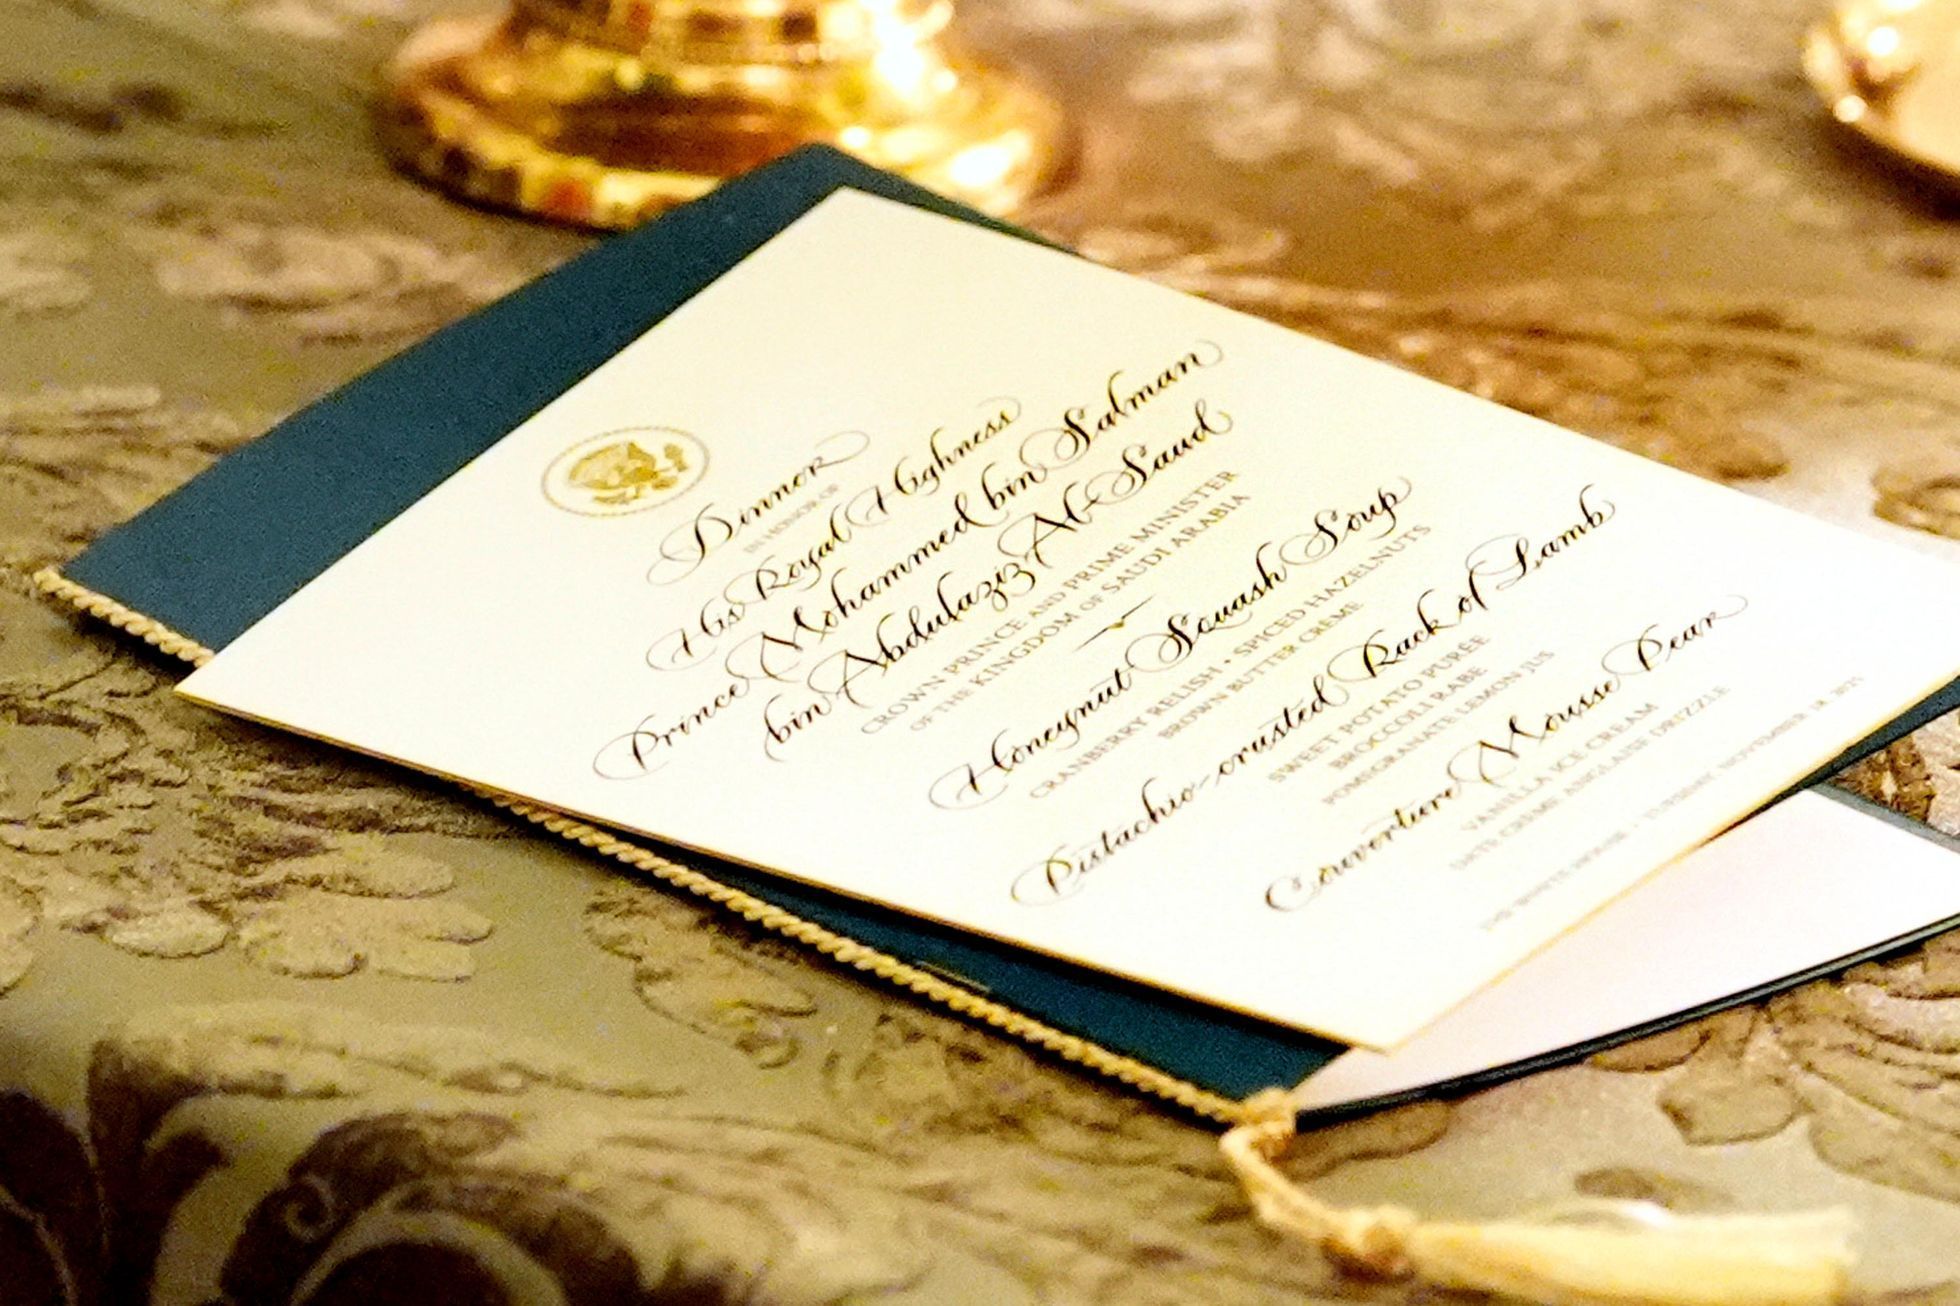 Dinner
IN HONOR OF
His Royal Highness
Prince Mohammed bin Salman
bin Abdulaziz Al-Saud
CROWN PRINCE AND PRIME MINISTER
OF THE KINGDOM OF SAUDI ARABIA
Honeynut Squash Soup
CRANBERRY RELISH • SPICED HAZELNUTS
BROWN BUTTER CRÈME
Pistachio-crusted Rack of Lamb
SWEET POTATO PURÉE
BROCCOLI RABE
POMEGRANATE LEMON JUS
Couverture Mousse Pear
VANILLA ICE CREAM
DATE CRÈME ANGLAISE DRIZZLE
THE WHITE HOUSE • TUESDAY, NOVEMBER 18, 2025